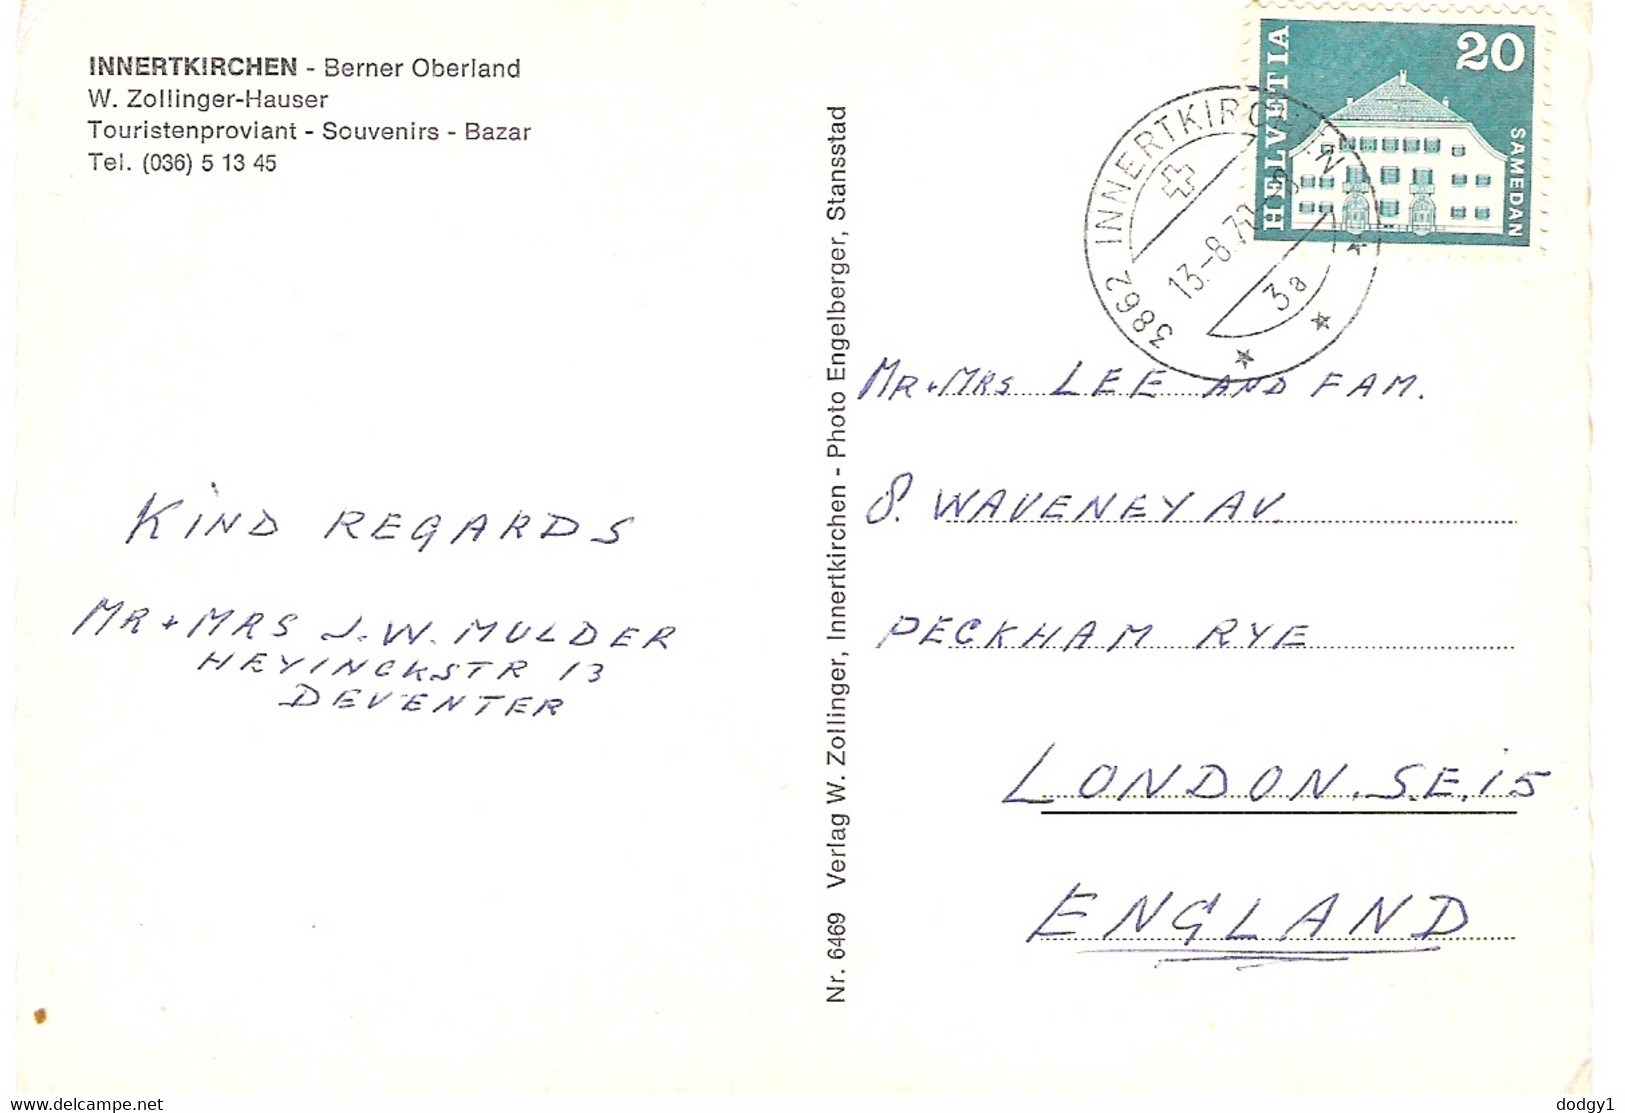 INNERTKIRCHEN - Berner Oberland
W. Zollinger-Hauser
Touristenproviant - Souvenirs - Bazar
Tel. (036) 5 13 45
KIND REGARDS
MR + MRS J.W. MULDER
HEYINCKSTR 13
DEVENTER
Nr. 6469 Verlag W. Zollinger, Innertkirchen - Photo Engelberger, Stansstad
HELVETIA
20
SAMEDAN
3862 INNERTKIRCHEN
13.-8.70
3a
MR + MRS LEE AND FAM.
8. WAVENEY AV.
PECKHAM RYE
LONDON. S.E. 15
ENGLAND
Delcampe.com
dodgy1